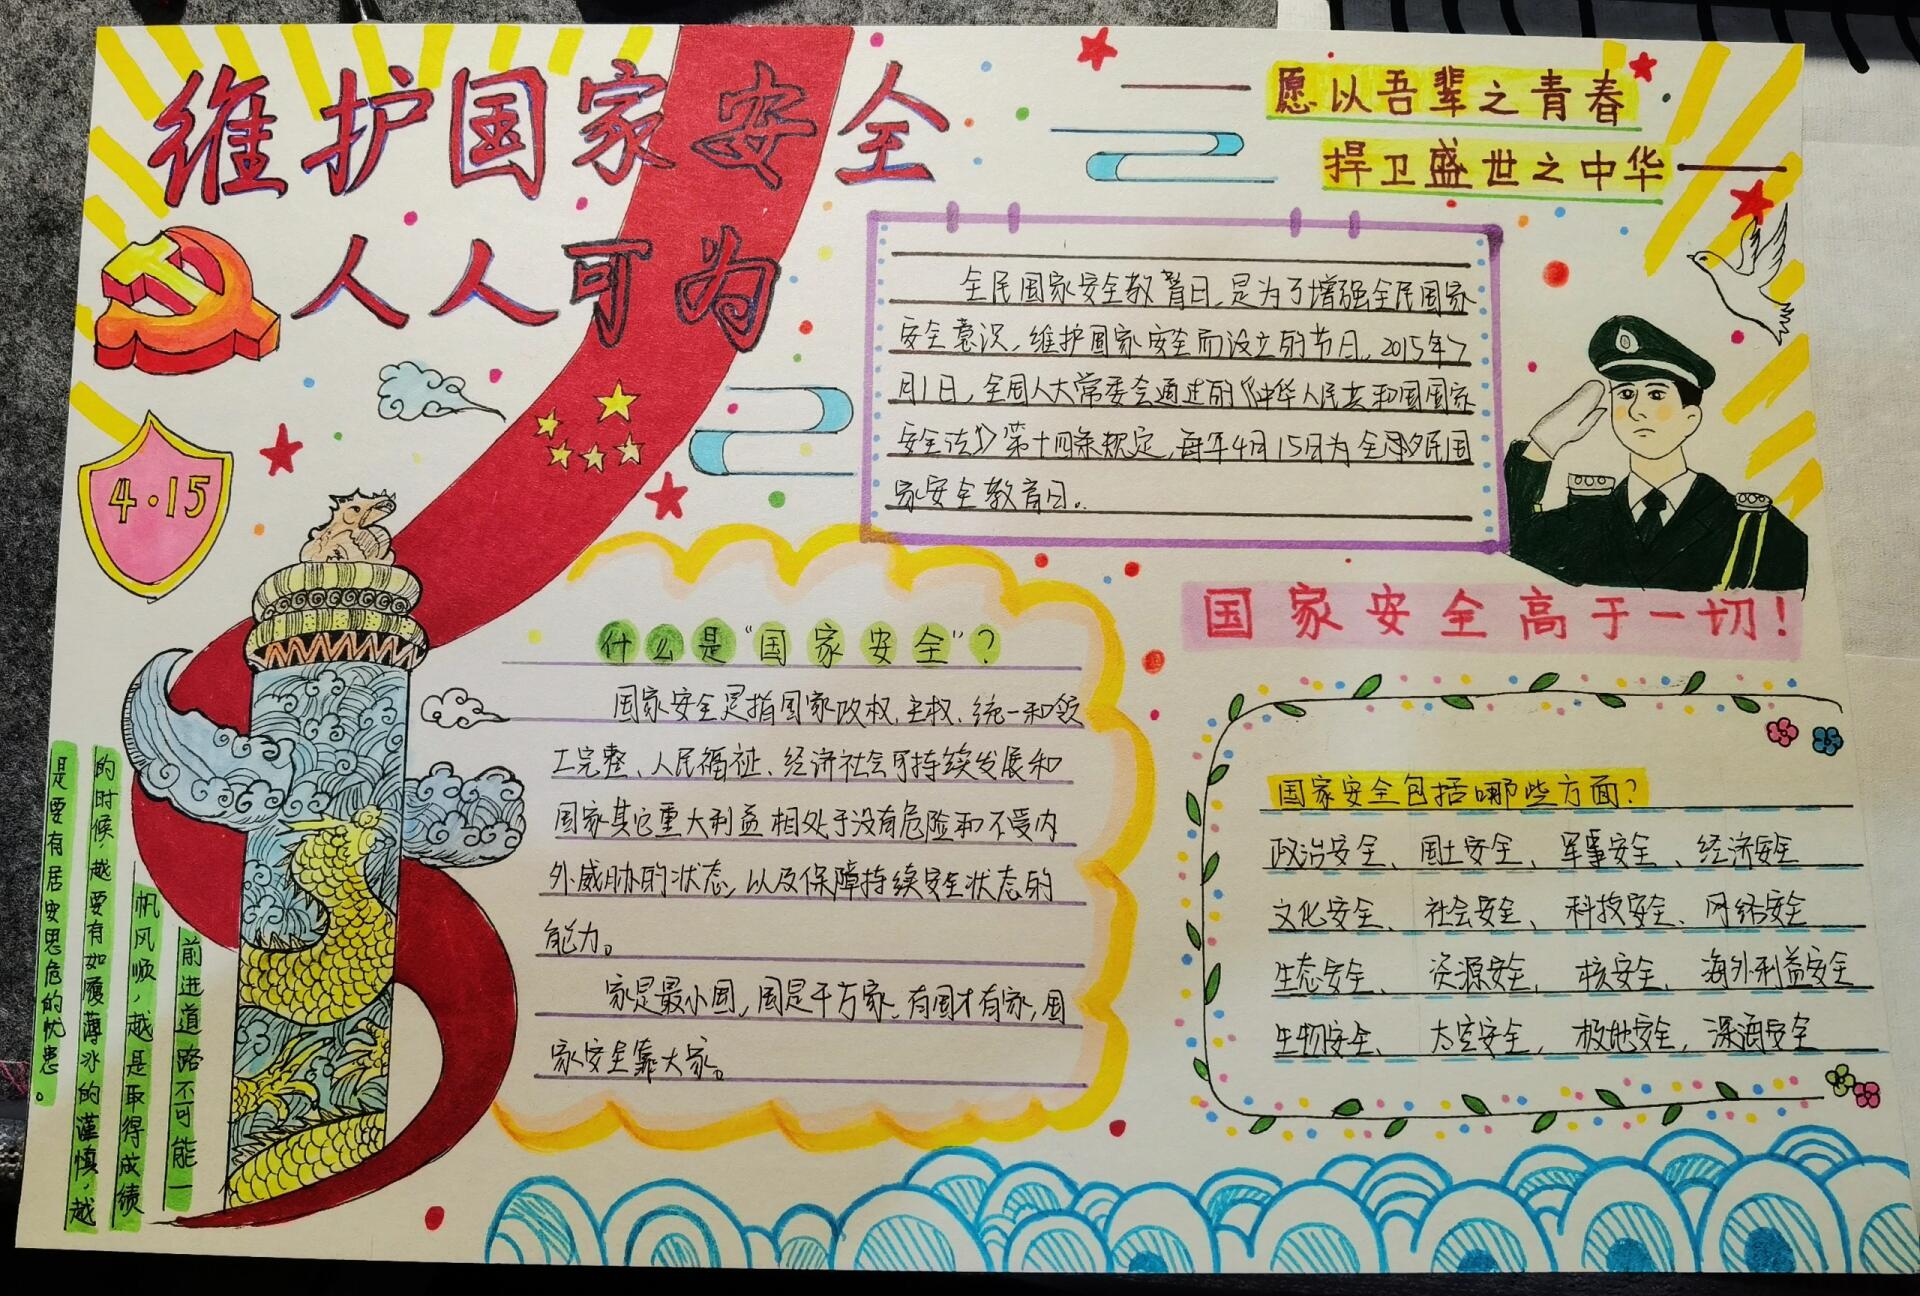 维护国家安全
人人可为
愿以吾辈之青春
捍卫盛世之中华
4·15
全民国家安全教育日，是为了增强全民国家
安全意识，维护国家安全而设立的节日，2015年7
月1日，全国人大常委会通过的《中华人民共和国国家
安全法》第十四条规定，每年4月15日为全民国
家安全教育日。
国家安全高于一切！
什么是“国家安全”？
国家安全是指国家政权、主权、统一和领
工完整、人民福祉、经济社会可持续发展和
国家其它重大利益相处于没有危险和不受内
外威胁的状态，以及保障持续安全状态的
能力。
家是最小国，国是千万家，有国才有家，国
家安全靠大家。
国家安全包括哪些方面？
政治安全、国土安全、军事安全、经济安全
文化安全、社会安全、科技安全、网络安全
生态安全、资源安全、核安全、海外利益安全
生物安全、太空安全，极地安全，深海安全
前进道路不可能一
帆风顺，越是取得成绩
的时候越要有如履薄冰的谨慎，越
是要有居安思危的忧患。